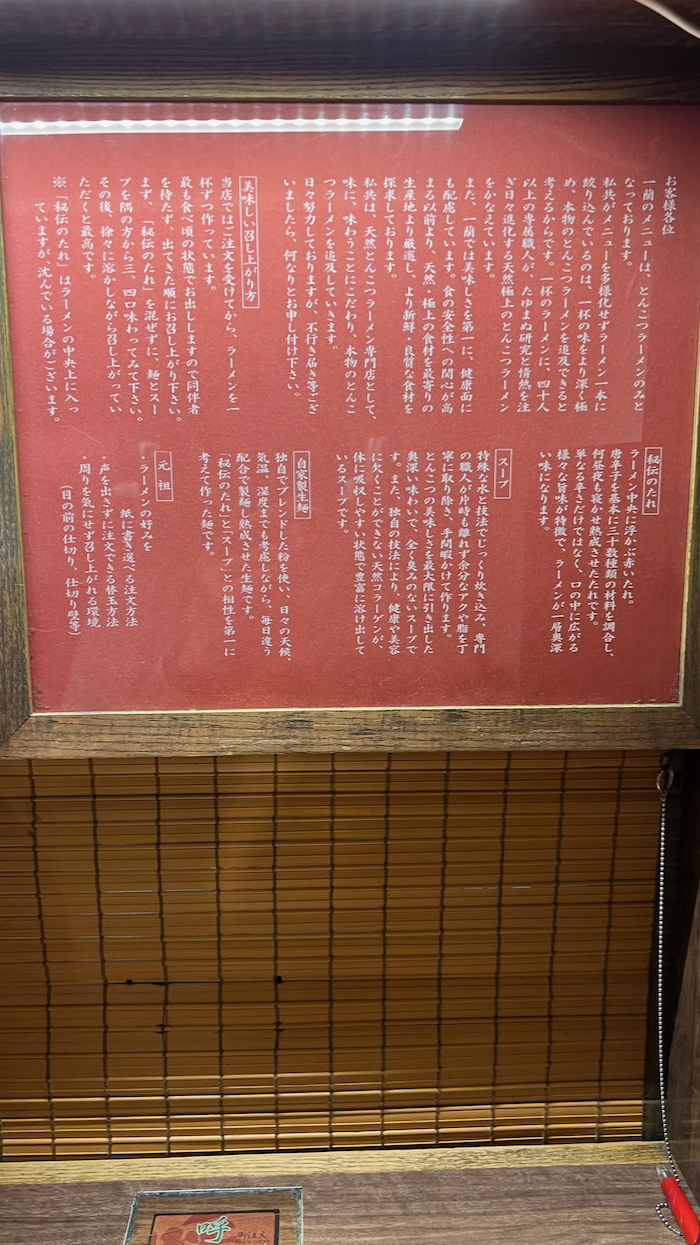 お客様各位
一蘭のメニューは、とんこつラーメンのみと
なっております。
私共がメニューを多様化せずラーメン一本に
絞り込んでいるのは、一杯の味をより深く極
め、本物のとんこつラーメンを追及できると
考えるからです。一杯のラーメンに、四十人
以上の専属職人が、たゆまぬ研究と情熱を注
ぎ日々進化する天然極上のとんこつラーメン
をかなえています。
また、一蘭では美味しさを第一に、健康面に
も配慮しています。食の安全性への関心が高
まる以前より、天然・極上の食材を最寄りの
生産地より厳選し、より新鮮・良質な食材を
探求しております。
私共は、天然とんこつラーメン専門店として、
味に、味わうことにこだわり、本物のとんこ
つラーメンを追及していきます。
日々努力しておりますが、不行き届き等ござ
いましたら、何なりとお申し付け下さい。
美味しい召し上がり方
当店ではご注文を受けてから、ラーメンを一
杯ずつ作っています。
最も食べ頃の状態でお出ししますので同伴者
を待たず、出てきた順にお召し上がり下さい。
まず、「秘伝のたれ」を混ぜずに、麺とスー
プを隅の方から三、四口味わってみて下さい。
その後、徐々に溶かしながら召し上がってい
ただくと最高です。
※「秘伝のたれ」はラーメンの中央上に入っ
ていますが、沈んでいる場合がございます。
秘伝のたれ
ラーメン中央に浮かぶ赤いたれ。
唐辛子を基本に三十数種類の材料を調合し、
何昼夜も寝かせ熟成させたたれです。
単なる辛さだけではなく、口の中に広がる
様々な旨味が特徴で、ラーメンが一層奥深
い味になります。
スープ
特殊な水と技法でじっくり炊き込み、専門
の職人が片時も離れず余分なアクや脂を丁
寧に取り除き、手間暇かけて作ります。
とんこつの美味しさを最大限に引き出した
奥深い味わいで、全く臭みのないスープで
す。また、独自の技法により、健康や美容
に欠くことができない天然コラーゲンが、
体に吸収しやすい状態で豊富に溶け出して
いるスープです。
自家製生麺
独自でブレンドした粉を使い、日々の天候、
気温、湿度までも考慮しながら、毎日違う
配合で製麺し熟成させた生麺です。
「秘伝のたれ」と「スープ」との相性を第一に
考えて作った麺です。
元祖
・ラーメンの好みを
紙に書き選べる注文方法
・声を出さずに注文できる替玉方法
・周りを気にせず召し上がれる環境
(目の前の仕切り、仕切り壁等)
呼